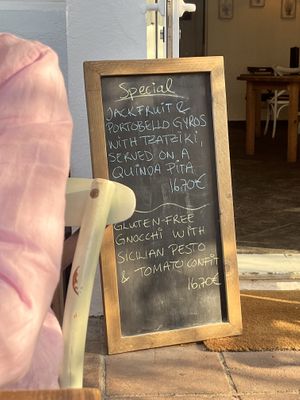 Special
JACKFRUIT &
PORTOBELLO GYROS
WITH TZATZIKI,
SERVED ON A
QUINOA PITA
16.70€
GLUTEN-FREE
GNOCCHI WITH
SICILIAN PESTO
& TOMATO CONFIT
16.70€